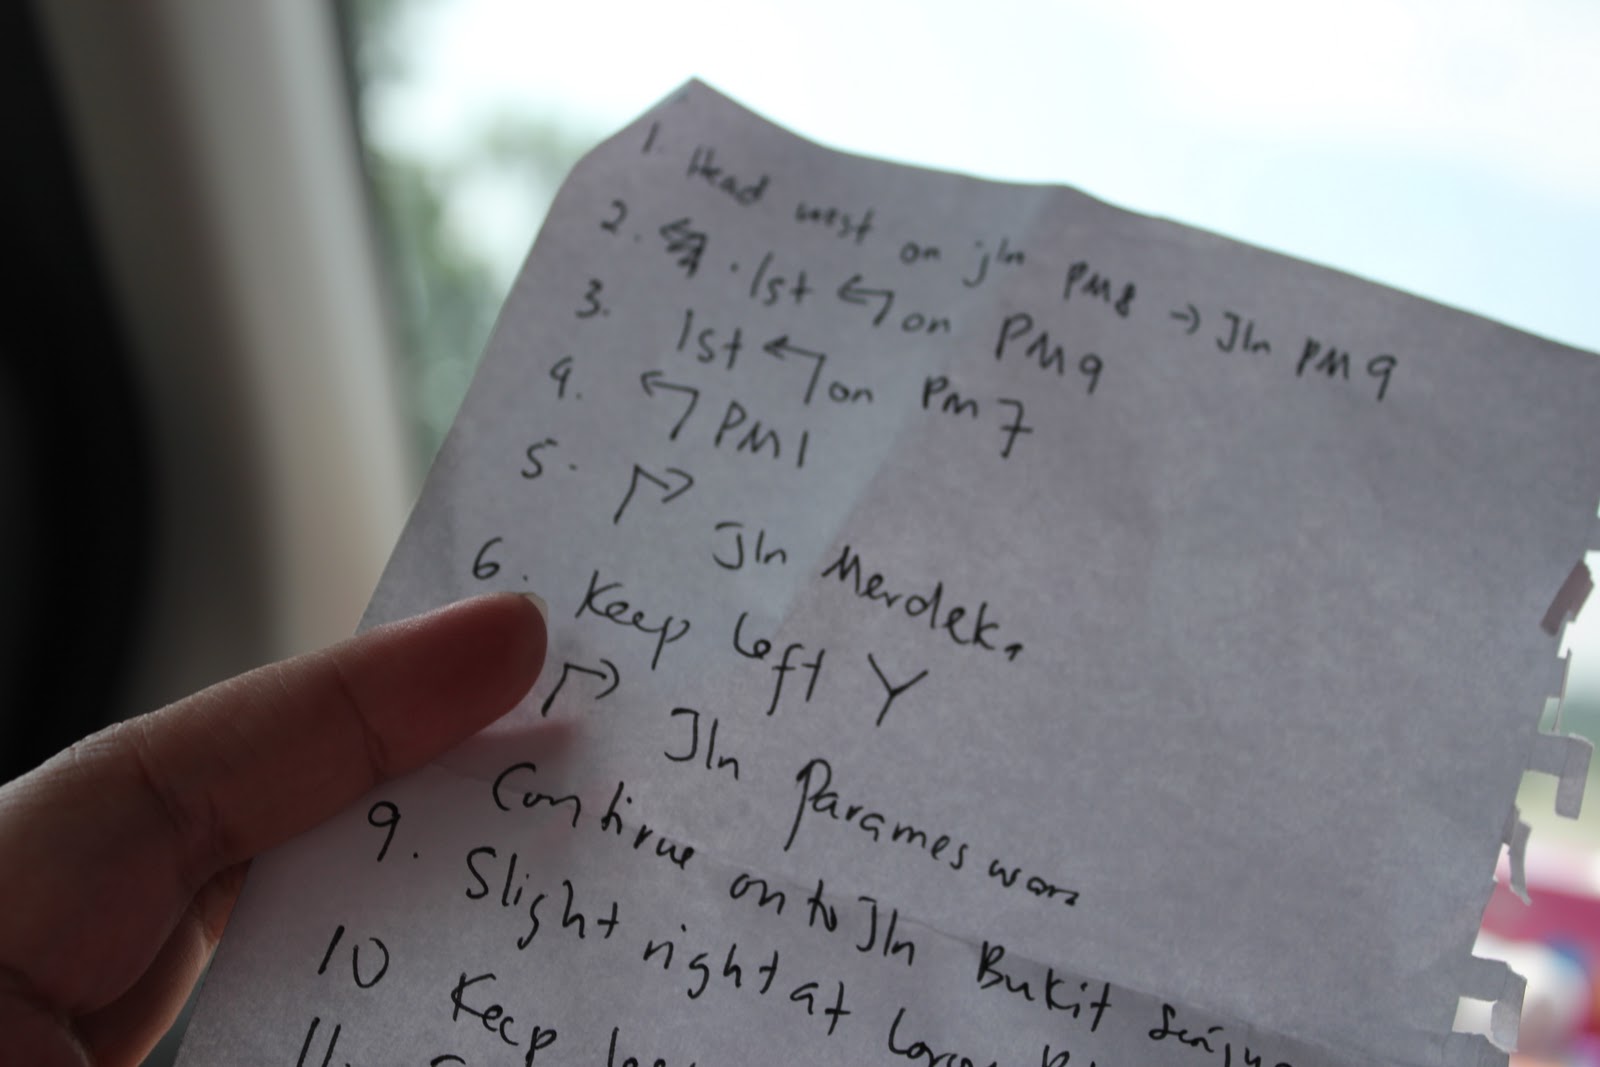 1. Head west on jln PM8 → Jln PM9
2. · 1st ↰ on PM9
3. 1st ↰ on PM7
4. ↰ PM1
5. ↱ Jln Merdeka
6. Keep left Y
↱ Jln Parameswara
Continue onto Jln Bukit Senju
9. Slight right at
10 Keep
11.